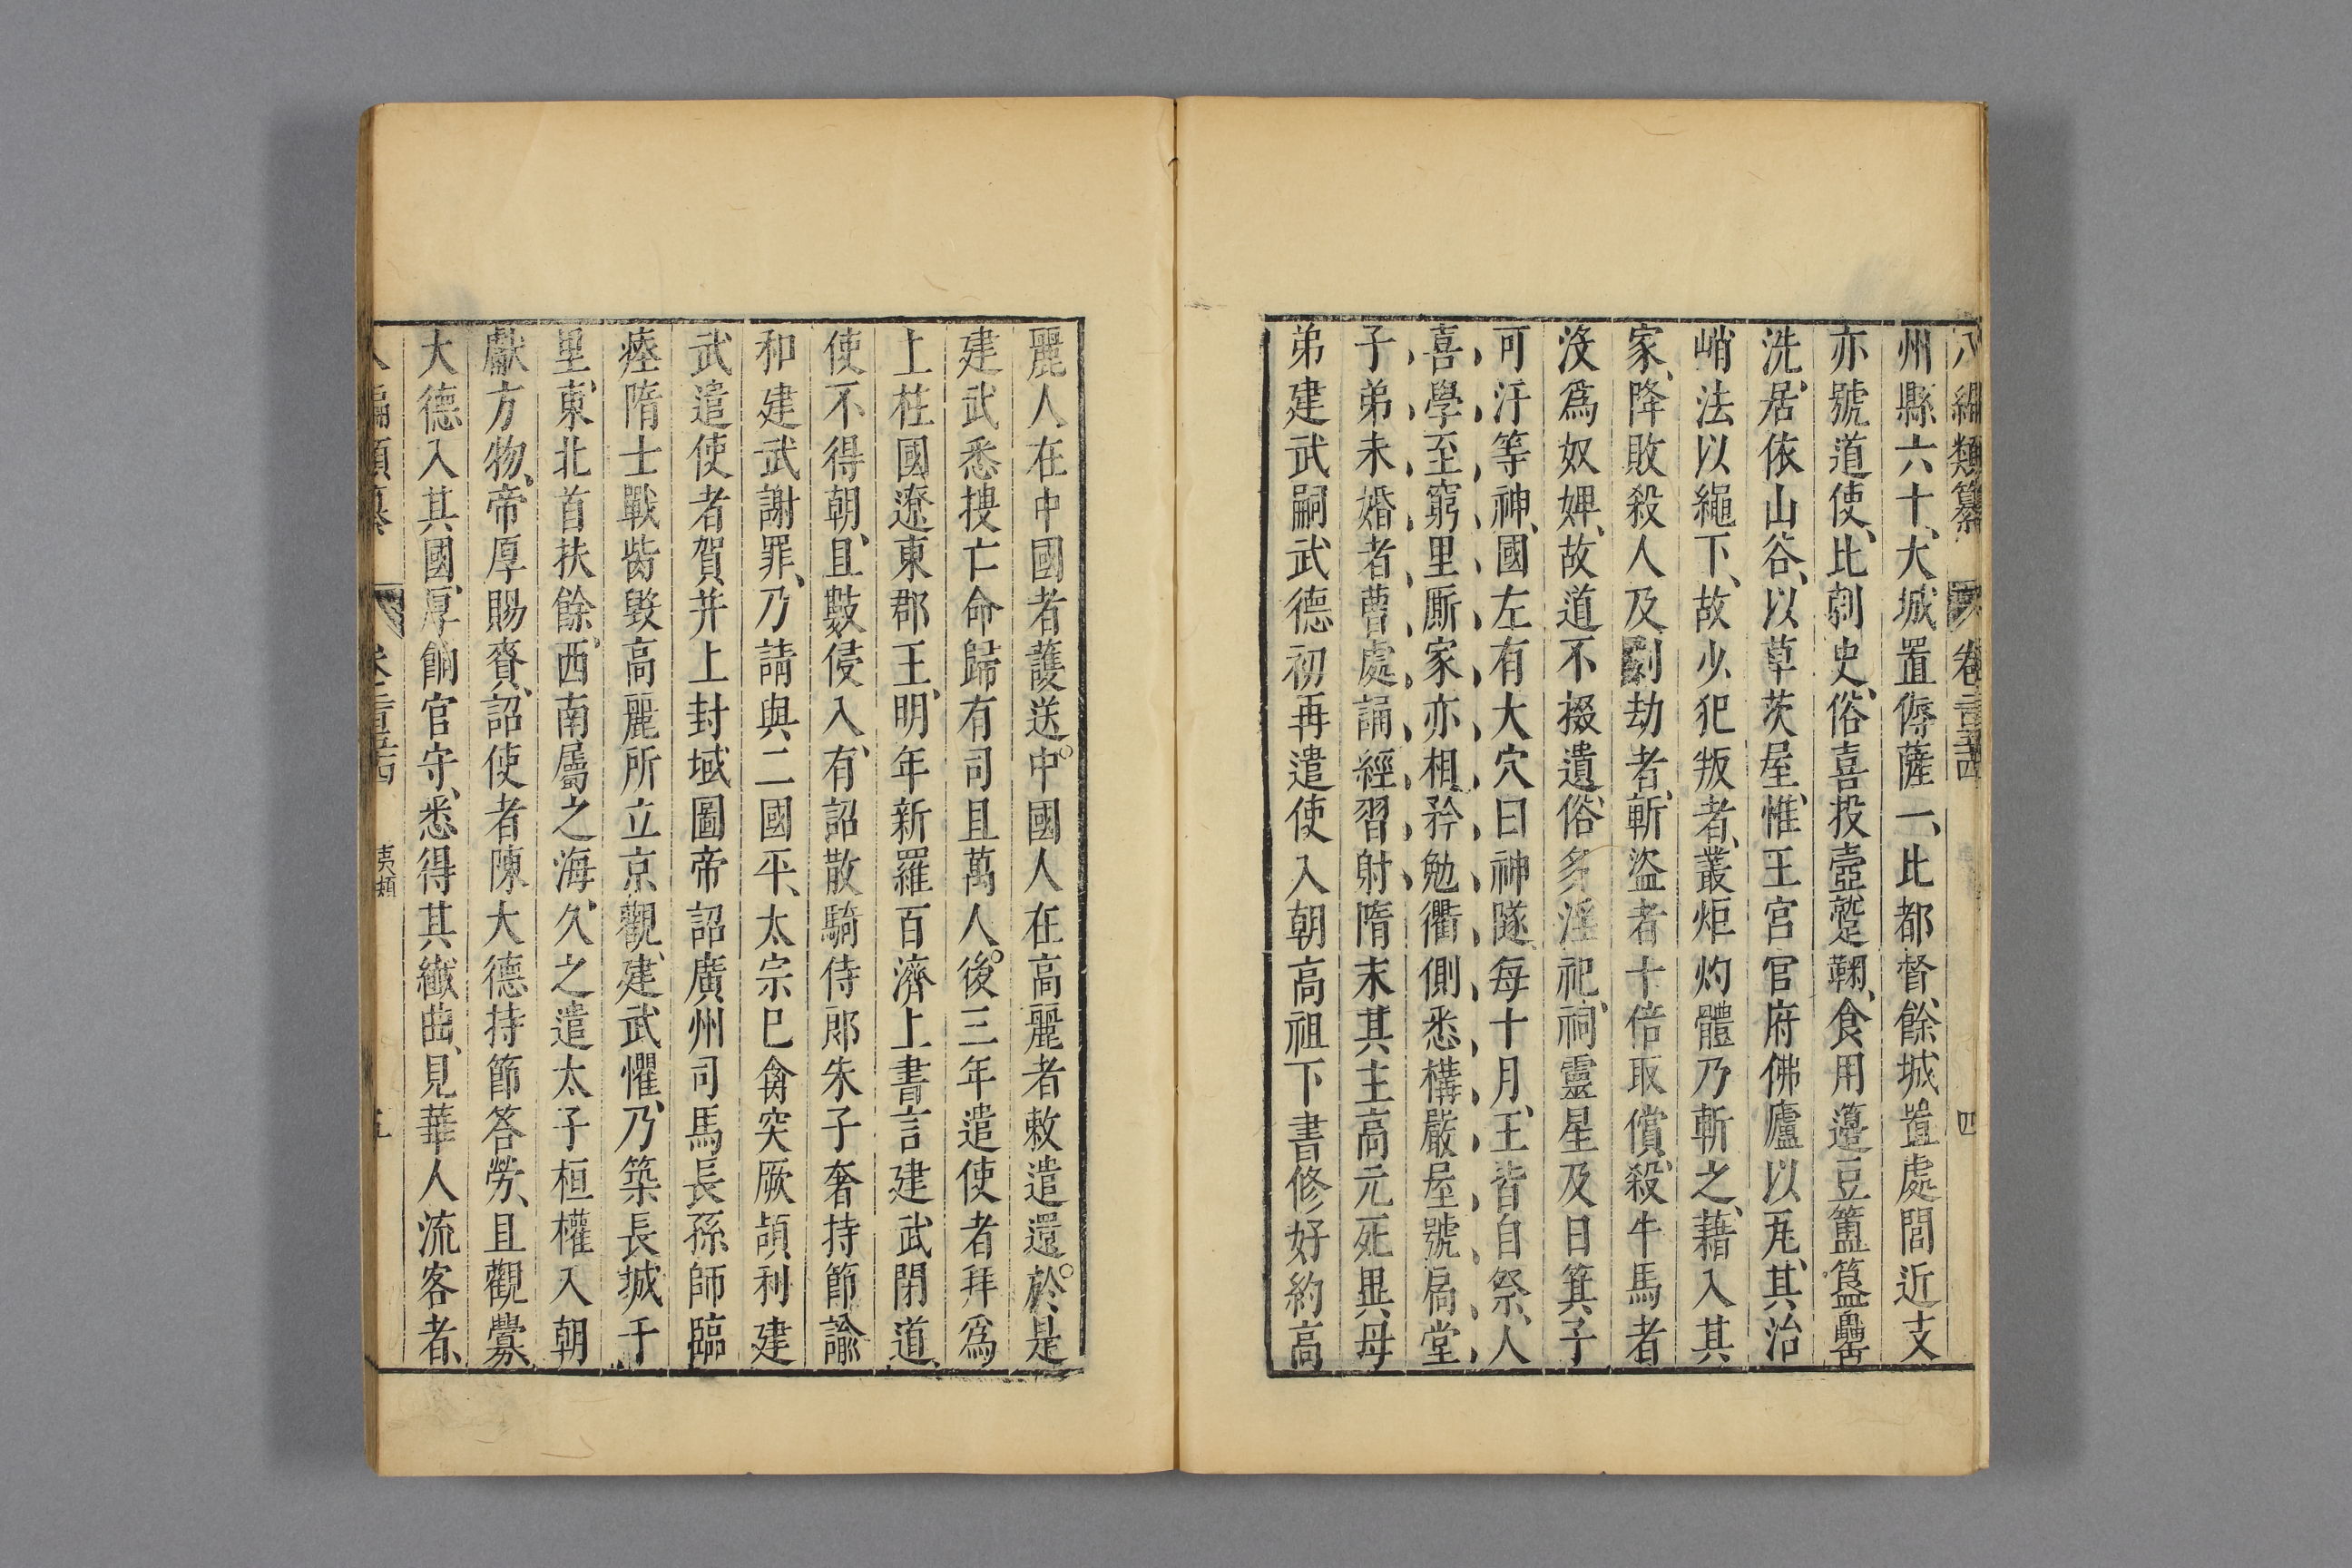 八編類纂 卷二百三十四 四
州縣六十、大城置傉薩一、比都督、餘城置處閭近支
亦號道使、比刺史、俗喜投壺蹵鞠、食用籩豆簠簋罍
洗、居依山谷、以草茨屋、惟王宮官府佛廬以瓦、其治
峭法以繩下、故少犯叛者、叢炬灼體乃斬之、藉入其
家、降敗殺人及剽劫者、斬、盜者十倍取償、殺牛馬者
沒爲奴婢、故道不掇遺、俗多淫祀、祠靈星及日箕子
可汗等神、國左有大穴曰神隧、每十月、王皆自祭、人
喜學至窮里厮家亦相矜勉衢側悉構嚴屋號扃堂
子弟未婚者曹處誦經習射隋末其主高元死異母
弟建武嗣武德初再遣使入朝高祖下書修好約高
麗人在中國者護送。中國人在高麗者敕遣還。於是
建武悉搜亡命歸有司且萬人。後三年遣使者拜爲
上柱國遼東郡王、明年新羅百濟上書言建武閉道、
使不得朝、且數侵入、有詔散騎侍郎朱子奢持節諭
和建武謝罪、乃請與二國平、太宗巳禽突厥頡利建
武遣使者賀并上封域圖帝詔廣州司馬長孫師臨
瘞隋士戰胔毀高麗所立京觀、建武懼、乃築長城千
里、東北首扶餘。西南屬之海、久之遣太子桓權入朝
獻方物、帝厚賜賚、詔使者陳大德持節答勞、且觀釁、
大德入其國、厚餉官守、悉得其纎曲、見華人流客者、
八編類纂 夷類 五